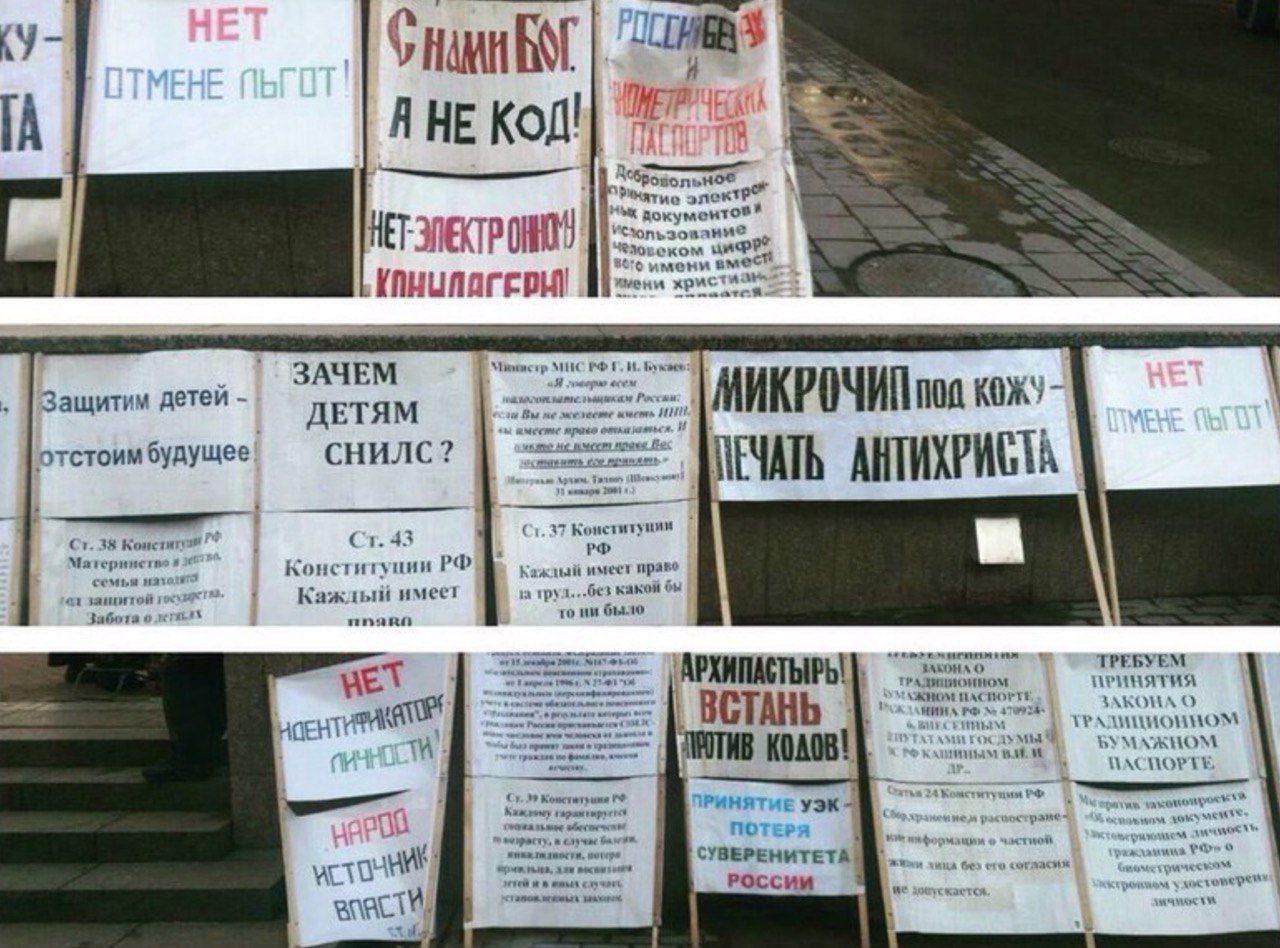 КУ-
ТА
НЕТ
ОТМЕНЕ ЛЬГОТ!
С НАМИ БОГ.
А НЕ КОД!
НЕТ-ЭЛЕКТРОННОМУ
РОССИЯ БЕЗ УЭК
И
БИОМЕТРИЧЕСКИХ
ПАСПОРТОВ
Добровольное
принятие электрон-
ных документов и
использование
человеком цифро
вого имени вместо
имени христиан-
Защитим детей -
отстоим будущее
Ст. 38 Конституции РФ
Материнство и детство,
семья находятся
под защитой государства.
Забота о детях
ЗАЧЕМ
ДЕТЯМ
СНИЛС ?
Ст. 43
Конституции РФ
Каждый имеет
право
Министр МНС РФ Г. И. Букаев:
«Я говорю всем
налогоплательщикам России:
если Вы не желаете иметь ИНН,
вы имеете право отказаться. И
никто не имеет права Вас
заставить его принять.»
31 января 2001 г.)
Ст. 37 Конституции
РФ
Каждый имеет право
на труд...без какой бы
то ни было
МИКРОЧИП ПОД КОЖУ-
ПЕЧАТЬ АНТИХРИСТА
НЕТ
ОТМЕНЕ ЛЬГОТ!
НЕТ
ИДЕНТИФИКАТОРУ
ЛИЧНОСТИ!
НАРОД
ИСТОЧНИК
ВЛАСТИ
от 15 декабря 2001г. №167-ФЗ-Об
обязательном пенсионном страховании»:
от 1 апреля 1996 г. N 27-ФЗ "Об
индивидуальном (персонифицированном)
учете в системе обязательного пенсионного
страхования", в результате которых всем
гражданам России присваивается СНИЛС-
Ст. 39 Конституции РФ
Каждому гарантируется
социальное обеспечение
по возрасту, в случае болезни,
инвалидности, потери
кормильца, для воспитания
детей и в иных случаях,
установленных законом.
АРХИПАСТЫРЬ!
ВСТАНЬ
ПРОТИВ КОДОВ!
ПРИНЯТИЕ УЭК -
ПОТЕРЯ
СУВЕРЕНИТЕТА
РОССИИ
ТРЕБУЕМ ПРИНЯТИЯ
ЗАКОНА О
ТРАДИЦИОННОМ
БУМАЖНОМ ПАСПОРТЕ
ГРАЖДАНИНА РФ № 470924-
6, ВНЕСЕННЫМ
ДЕПУТАТАМИ ГОСДУМЫ
ФС РФ КАШИНЫМ В.И. И
ДР..
Статья 24 Конституции РФ
Сбор,хранение,и распостране-
ние информации о частной
жизни лица без его согласия
не допускается.
ТРЕБУЕМ
ПРИНЯТИЯ
ЗАКОНА О
ТРАДИЦИОННОМ
БУМАЖНОМ
ПАСПОРТЕ
Мы против законопроекта
«Об основном документе,
удостоверяющем личность
гражданина РФ» о
биометрическом
электронном удостоверении
личности